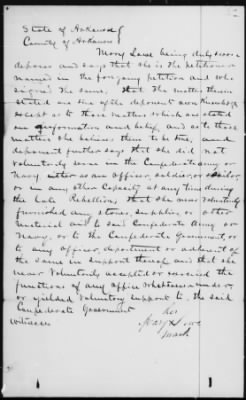 State of Arkansas }
County of Arkansas }
Mary Lowe being duly sworn
deposes and says that she is the petitioner
named in the foregoing petition and who
signed the same, that the matters therein
stated are true of the deponents own knowledge
except as to those matters which are stated
on information and belief, and as to those
matters she believes them to be true, and
deponent further says that she did not
voluntarily serve in the Confederate army or
Navy either as an officer, soldier, or sailor,
or in any other capacity at any time during
the late Rebellion, that she never voluntarily
furnished any stores, supplies, or other
material aid to said Confederate Army or
Navy, or to the Confederate Government, or
to any officer, department or adherent of
the same in support thereof, and that she
never voluntarily accepted or exercised the
functions of any office whatsoever under,
or yielded voluntary support to, the said
Confederate Government
her
Witnesses Mary X Lowe
mark